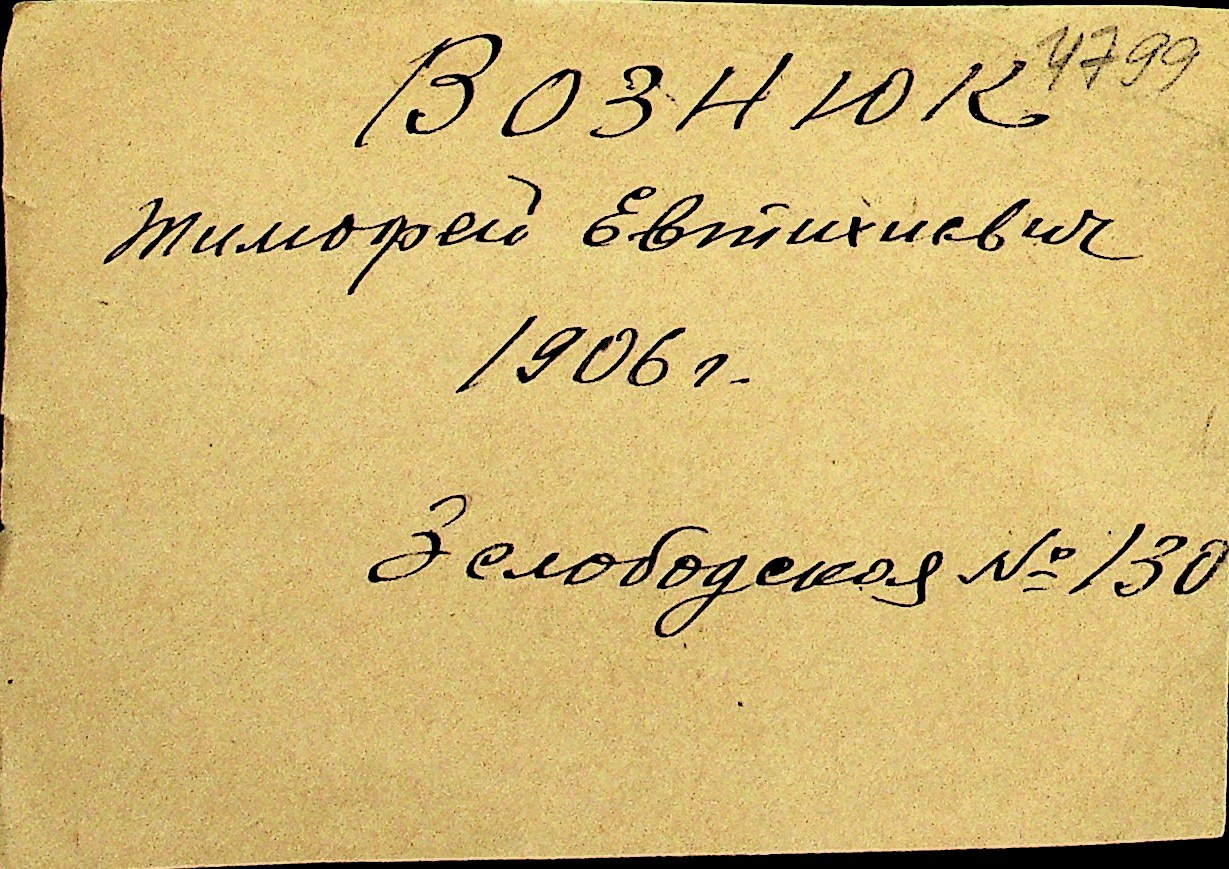 ВОЗНЮК 4799
Тимофей Евтихиевич
1906 г.
3 слободская № 130